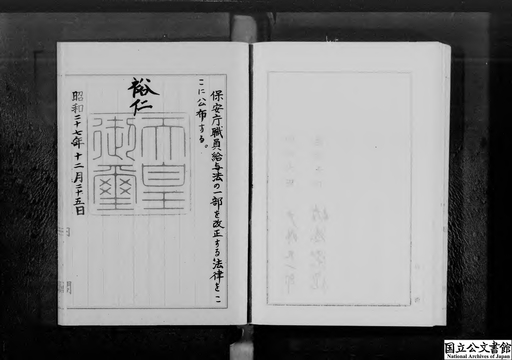 保安庁職員給与法の一部を改正する法律をこ
こに公布する。
裕仁
天皇
御璽
昭和二十七年十二月二十五日
国立公文書館
National Archives of Japan